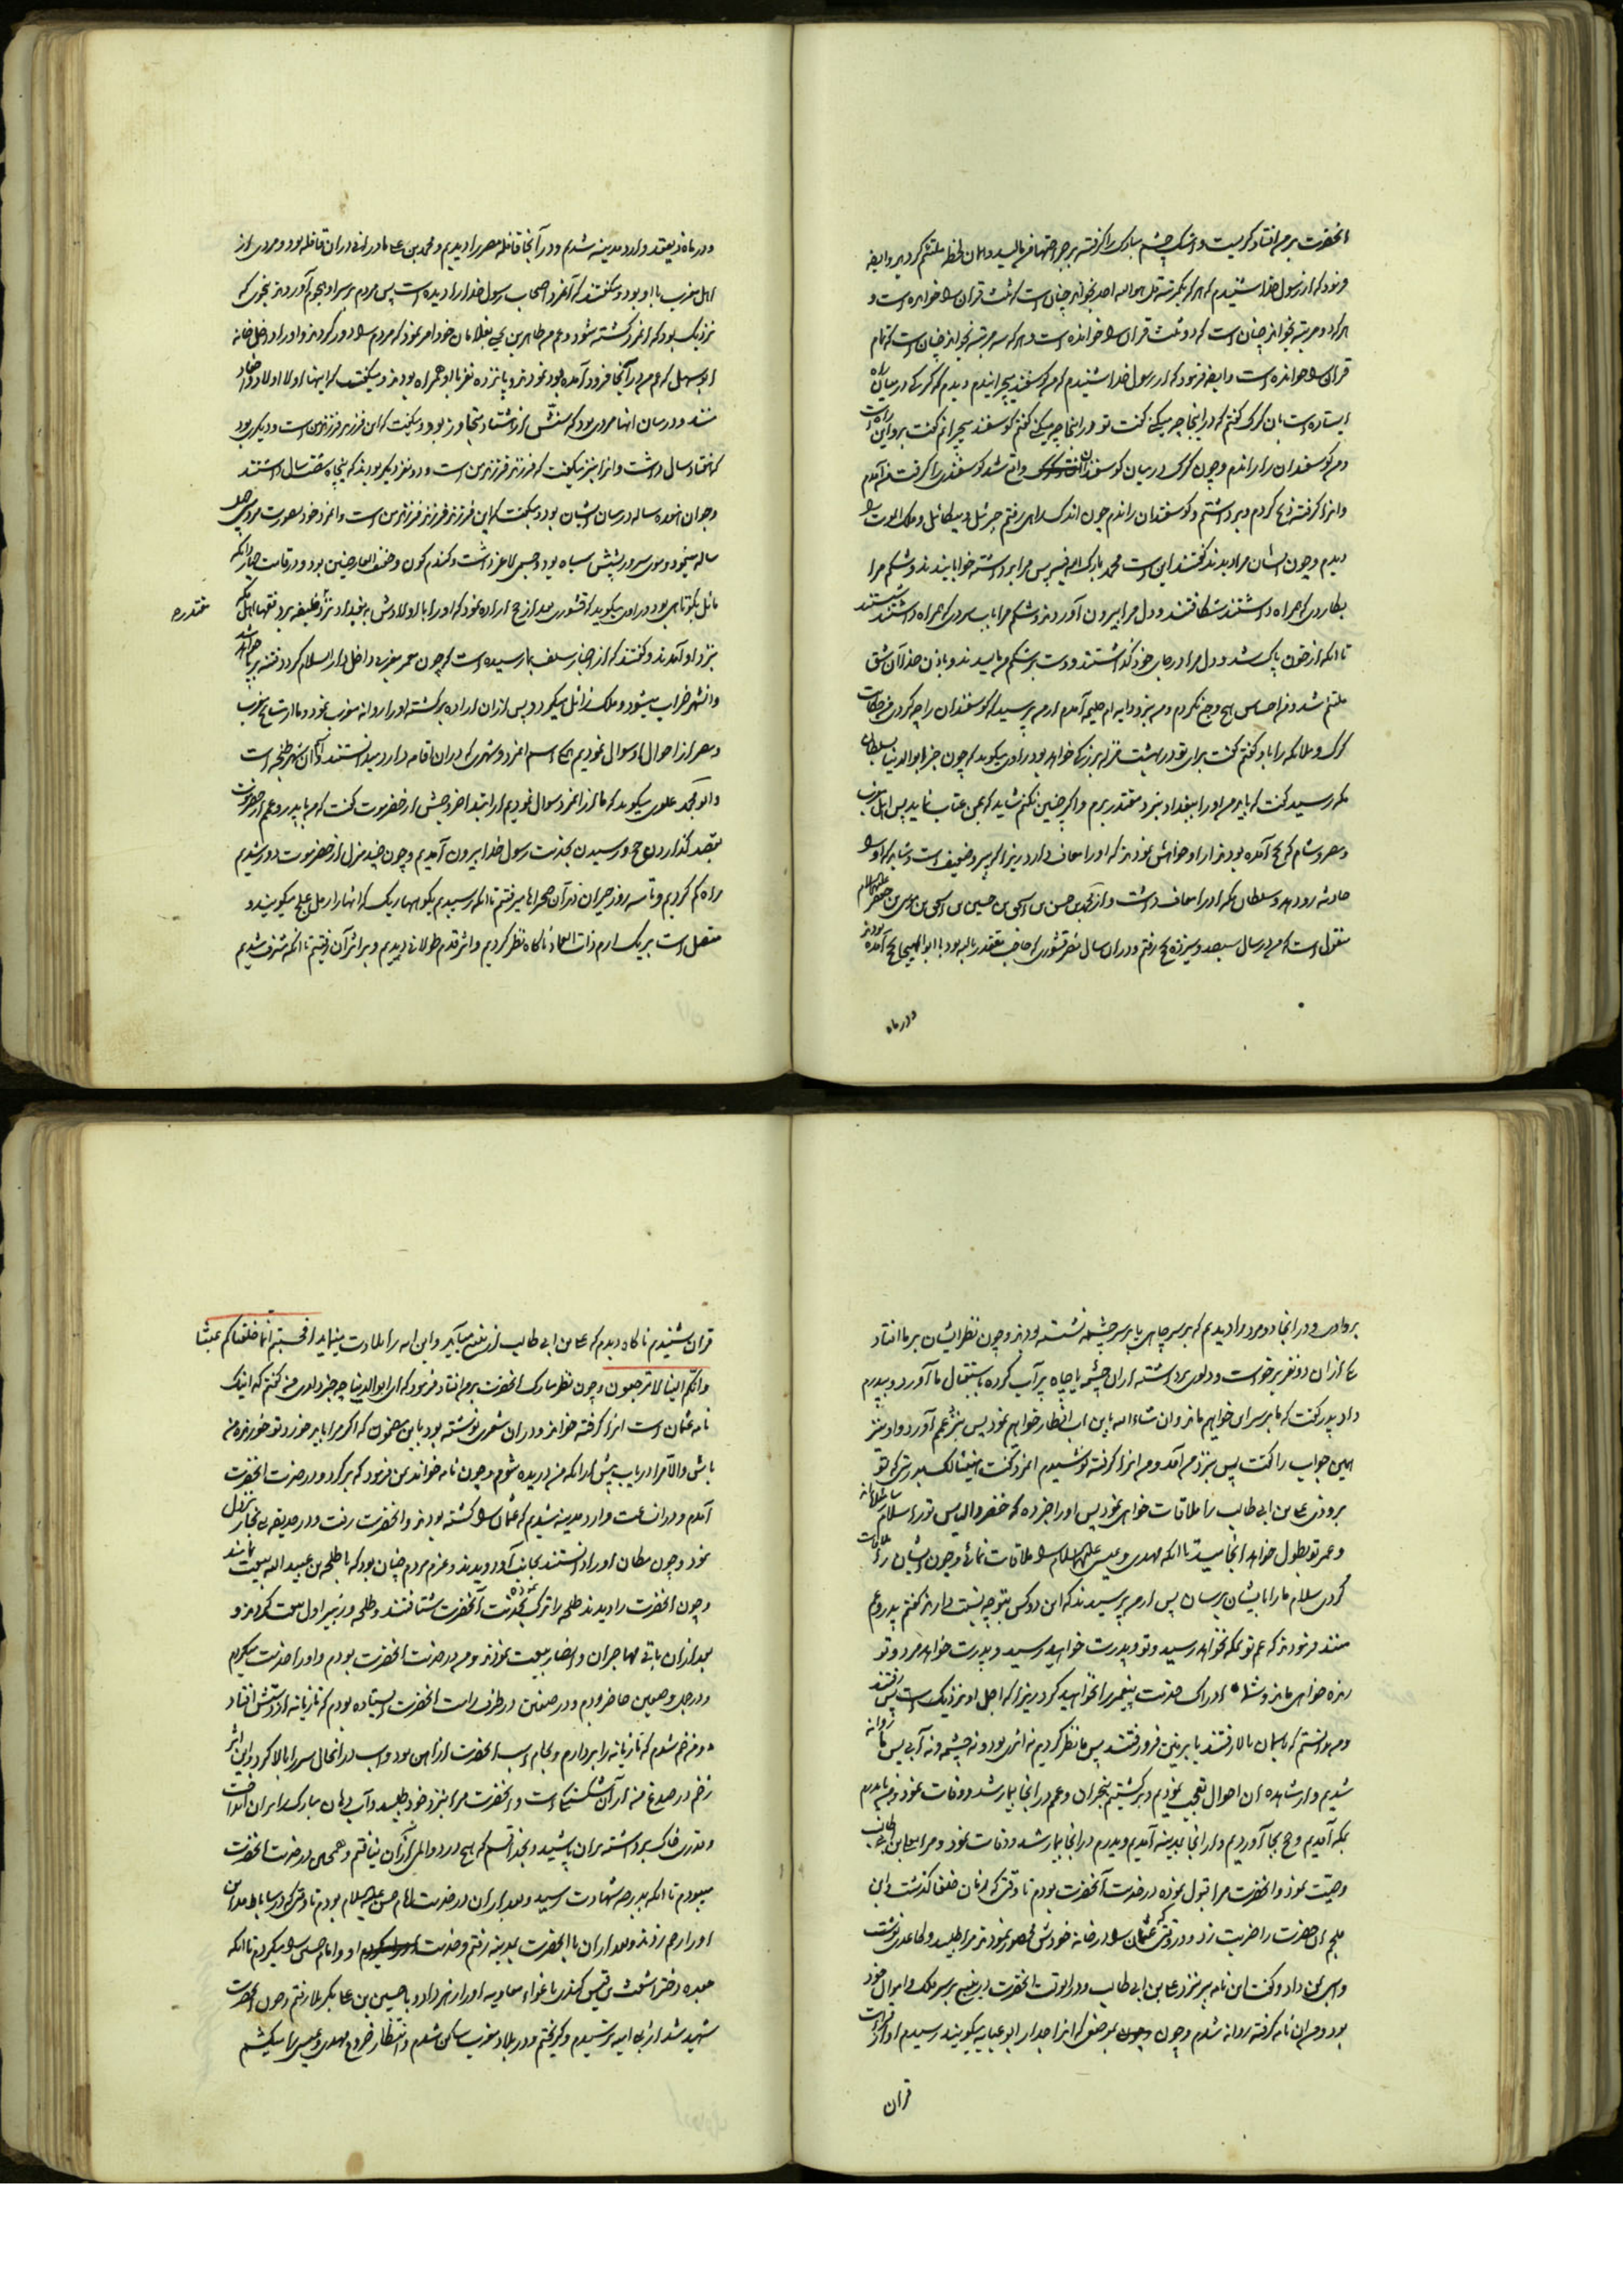 آنحضرت بر من افتاد گریست و اشک چشم مبارک را گرفته بر جراحتها مالید و همان لحظه ملتئم گردید و ایضا
فرمود که از رسول خدا شنیدم که هر که یکمرتبه قل هو الله احد بخواند چنان است که ثلث قران را خوانده است و
هر که دو مرتبه بخواند چنان است که دو ثلث قران را خوانده است و هر که سه مرتبه بخواند چنان است که تمام
قران را خوانده است و ایضا فرمود که از رسول خدا شنیدم که من گوسفند میچرانیدم دیدم که گرگی در میان راه
ایستاده است بان گرگ گفتم که در اینجا چه میکنی گفت تو در اینجا چه میکنی گفتم گوسفند میچرانم گفت برو این راه است
و من گوسفندان را راندم و چون گرگ در میان گوسفندان واقع شد گوسفندی را گرفت من آمدم
و او را گرفته ذبح کردم و برداشتم و گوسفندان راندم چون اندک راهی رفتم جبرئیل و میکائیل و ملک الموت را
دیدم و چون ایشان مرا دیدند گفتند این است محمد بارک الله فیه پس مرا برداشته خوابانیدند و شکم مرا
بکاردی که همراه داشتند شکافتند و دل مرا بیرون آوردند و شکم مرا باب سردی که همراه داشتند شستند
تا انکه از خون پاک شد و دل مرا در جای خود گذاشتند و دست بر شکم من مالیدند و باذن خدا آن شق
ملتئم شد و من احساس هیچ وجع نکردم و من نزد دایه ام حلیمه آمدم از من پرسید که گوسفندان را چه کردی من حکایت
گرگ و ملائکه را باو گفتم گفت برای تو در بهشت منزله بزرگی خواهد بود راوی میگوید که چون خبر ابو الدنیا بسلطان
مکه رسید گفت که باید من او را ببغداد نزد مقتدر برم و اگر چنین نکنم شاید که بمن عتاب نماید پس اهل مغرب
و مصر و شام که بحج آمده بودند از او خواهش نمودند که او را معاف دارد زیرا که پیر و ضعیف است و شاید که او را
حادثه رو دهد و سلطان مکه او را معاف داشت و از محمد بن حسن بن اسحق بن حسین بن اسحق بن موسی بن جعفر علیهما السلام
منقول است که من در سال سیصد و سیزده بحج رفتم و در ان سال نصر قشوری که حاجب مقتدر بالله بود با ابو الهیجا بحج آمده بودند
در ماه
و در ماه ذیقعد وارد مدینه شدیم و در آنجا قافله مصر را دیدیم و محمد بن علی مادرانی در ان قافله بود و مردی از
اهل مغرب با او بود و میگفتند که آنمرد اصحاب رسول خدا را دیده است پس مردم بر سر او هجوم آوردند بنحوی که
نزدیک بود که آنمرد کشته شود و عم من طاهر بن یحیی بغلامان خود امر نمود که مردم را دور کردند و او را داخل خانه
ابو سهل که عم من در آنجا فرود آمده بود نمودند و پانزده نفر با او همراه بودند و میگفت که اینها اولاد اولاد من
هستند و در میان انها مردی بود که سنش از هشتاد متجاوز بود و میگفت که این فرزند فرزند من است و دیگری بود
که هفتاد سال داشت و او را نیز میگفت که فرزند فرزند من است و دو نفر دیگر بودند که پنجاه شصت سال داشتند
و جوان هفده ساله در میان ایشان بود و میگفت که این فرزند فرزند فرزند من است و آنمرد خود بصورت مرد سی چهل
ساله مینمود و موی سر و ریشش سیاه بود و جسمی لاغر داشت و گندم گون و خفیف العارضین بود و در قامت
مائل بکوتاهی بود راوی میگوید که قشوری بعد از حج اراده نمود که او را با اولادش ببغداد نزد خلیفه برد فقهاء اهل مکه
مقتدره
نزد او آمدند و گفتند که از اخبار سلف بما رسیده است که چون معمر مغربی داخل دار السلام گردد فتنه برپا خواهد شد
و انشهر خراب میشود و ملک زائل میگردد پس از ان اراده برگشته او را روانه مغرب نمود و ما از مشایخ مغرب
و مصر از احوال او سوال نمودیم همه اسم انمرد و شهری که در ان اقامه دارد میدانستند و آن شهر طنجه است
و ابو محمد علوی میگوید که ما از انمرد سوال نمودیم از ابتداء خروجش از حضرموت گفت که من با پدر و عم از حضرموت
بقصد گذاردن حج و رسیدن بخدمت رسول خدا بیرون آمدیم و چون چند منزل از حضرموت دور شدیم
راه گم کردیم و تا سه روز حیران در آن صحراها میرفتیم تا انکه رسیدیم بکوههای ریگ که انها را رمل عالج میگویند و
متصل است بریگ ارم ذات العماد ناگاه نظر کردیم و اثر قدم طولانی دیدیم و بر اثر آن رفتیم تا انکه مشرف شدیم
بر وادی و در انجا دو مرد را دیدیم که بر سر چاهی یا بر سر چشمه نشسته بودند و چون نظر ایشان بر ما افتاد
یکی از ان دو نفر برخواست و دلوی برداشته از ان چشمه یا چاه پر آب کرده باستقبال ما آورد و بپدرم
داد پدرم گفت که ما بر سر این خواهیم ماند و ان شاء الله باین اب افطار خواهیم نمود پس نزد عمم آورد و او نیز
همین جواب را گفت پس نزد من آمد و من او را گرفته نوشیدم انمرد گفت هنیئا لک بدرستی که تو
بزودی علی بن ابی طالب را ملاقات خواهی نمود پس او را خبر ده که خضر و الیاس تو را سلام میرسانند
و عمر تو بطول خواهد انجامید تا انکه مهدی و عیسی علیهما السلام را ملاقات نمائی و چون ایشان را ملاقات
کردی سلام ما را بایشان برسان پس از من پرسیدند که این دو کس بتو چه نسبت دارند گفتم پدر و عم
منند فرمودند که عم تو بمکه نخواهد رسید و تو و پدرت خواهید رسید و پدرت خواهد مرد و تو
زنده خواهی ماند و شما ادراک خدمت پیغمبر را نخواهید کرد زیرا که اجل او نزدیک است پس رفتند
و من ندانستم که باسمان بالا رفتند یا بزمین فرو رفتند پس ما نظر کردیم نه اثری بود و نه چشمه و نه آبی پس ما روانه
شدیم و از مشاهده ان احوال تعجب نمودیم و برگشتیم بنجران و عمم در انجا بیمار شد و وفات نمود و من با پدرم
بمکه آمدیم و حج بجا آوردیم و از انجا بمدینه آمدیم و پدرم در انجا بیمار شد و وفات نمود و مرا بعلی بن ابی طالب
وصیت نمود و آنحضرت مرا قبول نموده در خدمت آنحضرت بودم تا وقتی که زمان خلفا گذشت و ابن
ملجم ان حضرت را ضربت زد و در وقتی که عثمان را در خانه خودش محصور نمودند مرا طلبید و کاغذی نوشت
و بمن داد و گفت این نامه ببر نزد علی بن ابی طالب و در انوقت آنحضرت در ینبع بر سر ملک و اموال خود
بود و من ان نامه گرفته روانه شدم و چون بموضعی که انرا جدار ابو عبایه میگویند رسیدم اواز قراءت
قران
قران شنیدم ناگاه دیدم که علی بن ابی طالب از ینبع میآید و این آیه را تلاوت مینماید افحسبتم انما خلقناکم عبثا
و انکم الینا لا ترجعون و چون نظر مبارک آنحضرت بر من افتاد فرمود که ای ابو الدنیا چه خبر داری من گفتم که اینک
نامه عثمان است انرا گرفته خواند و در ان شعری نوشته بود باین مضمون که اگر مرا باید خورد تو خورنده من
باش و الا مرا دریاب پیش از انکه من دریده شوم و چون نامه خواند بمن فرمود که برگرد و در خدمت آنحضرت
آمدم و در ان ساعت وارد مدینه شدیم که عثمان را کشته بودند و آنحضرت رفت و در حدیقه بنی نجار نزول
نمود و چون مکان او را دانستند بجانب او دویدند و عزم مردم چنان بود که با طلحه بن عبید الله بیعت نمایند
و چون آنحضرت را دیدند طلحه را ترک نموده بخدمت آنحضرت شتافتند و طلحه و زبیر اول بیعت کردند و
بعد از ان باقی مهاجران و انصار بیعت نمودند و من در خدمت آنحضرت بودم و او را خدمت میکردم
و در جمل و صفین حاضر بودم و در صفین در طرف راست آنحضرت ایستاده بودم که تازیانه از دستش افتاد
و من خم شدم که تازیانه را بردارم و لجام اسب آنحضرت از اهن بود و اسب در انحال سر را بالا کرد و این اثر
زخم در صدغ من از آن شکستگی است و آنحضرت مرا بنزد خود طلبید و آب دهان مبارک را بر ان انداخت
و قدری خاک برداشته بران پاشید و بخدا قسم که هیچ درد و المی از آن نیافتم و همچنین در خدمت آنحضرت
میبودم تا انکه بدرجه شهادت رسید و بعد از ان در خدمت امام حسن علیه السلام بودم تا وقتی که در ساباط مداین
او را زخم زدند و بعد از ان با آنحضرت بمدینه رفتم و خدمت او و امام حسین را میکردم تا انکه
جعده دختر اشعث بن قیس کندی باغواء معاویه او را زهر داد و با حسین بن علی بکربلا رفتم و چون آنحضرت
شهید شد از بنی امیه ترسیدم و گریختم و در بلاد مغرب ساکن شدم و انتظار خروج مهدی و عیسی را میکشم